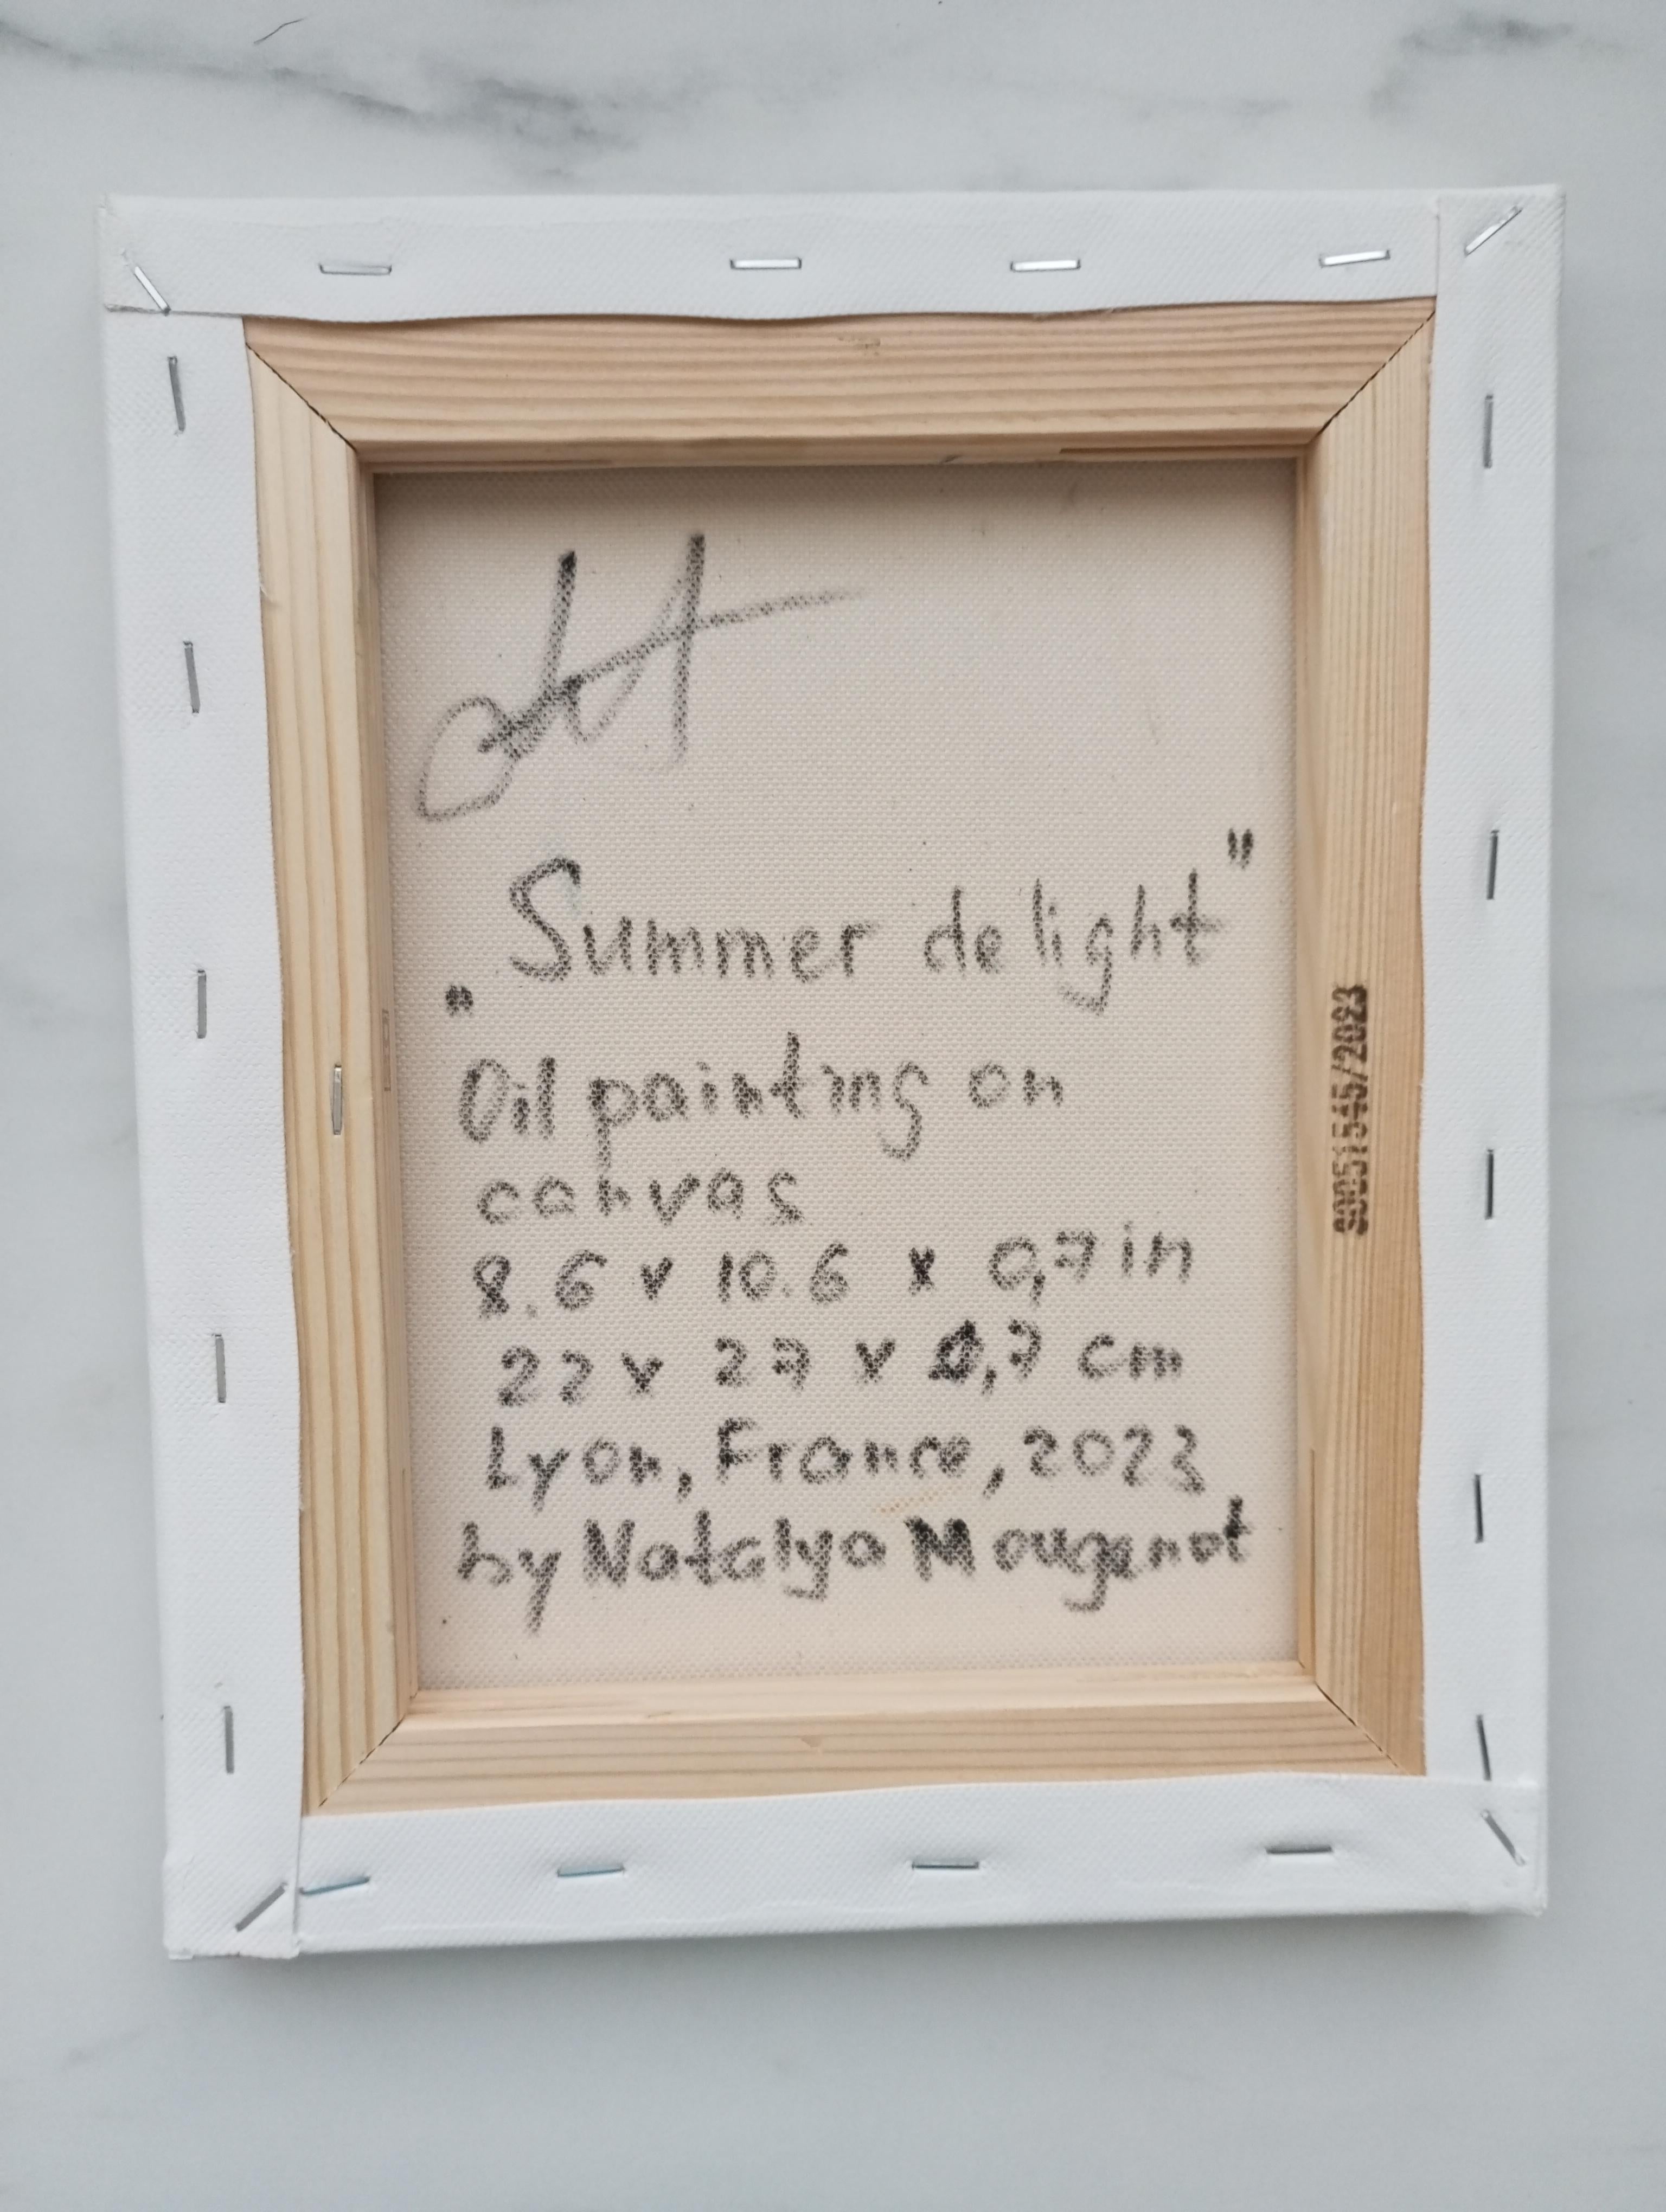 „Summer delight"
Oil painting on
canvas
8.6 x 10.6 x 0,7 in
22 x 27 x 0,7 cm
Lyon, France, 2023
by Natalya Mougenot